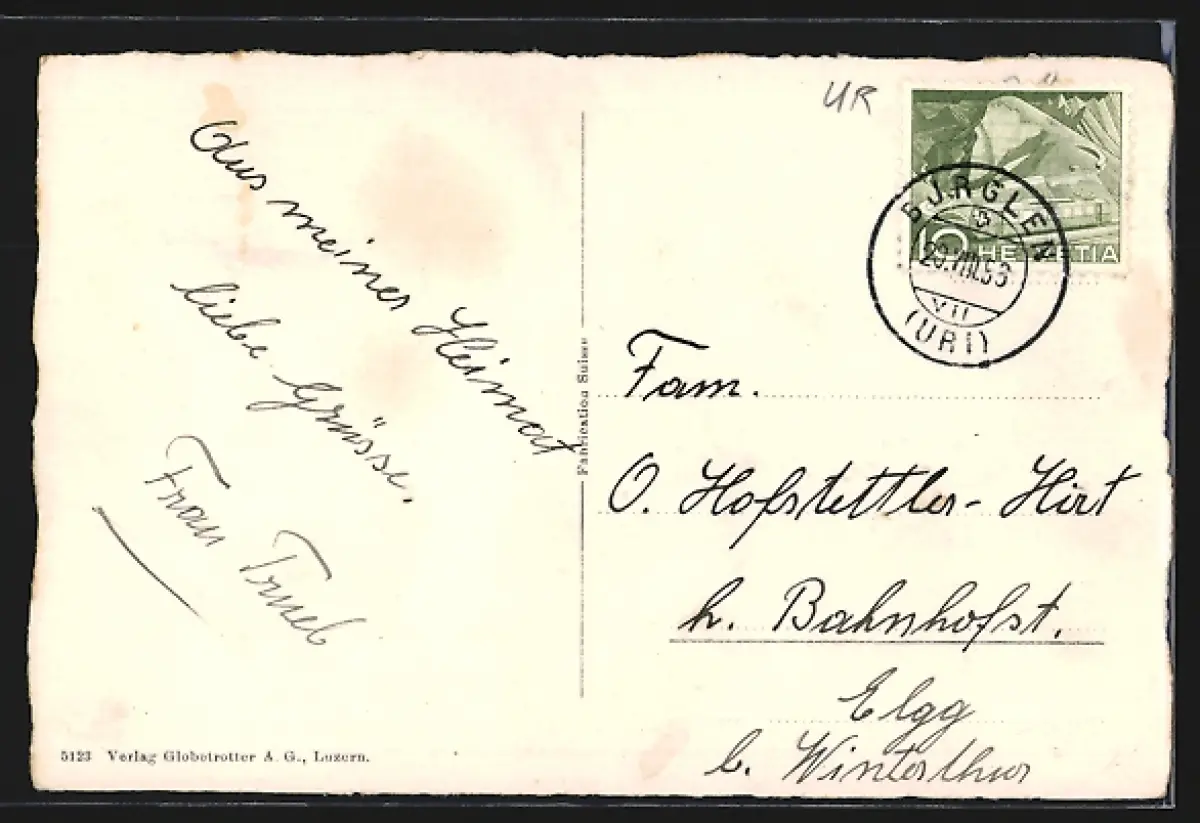 Aus meiner Heimat
liebe Grüsse.
Frau Trueb
5123 Verlag Globetrotter A. G., Luzern.
Fabrication Suisse
UR
10 HELVETIA
BÜRGLEN
29.VIII.53
VII
(URI)
Fam.
O. Hofstettler-Hirt
h. Bahnhofst.
Elgg
b. Winterthur